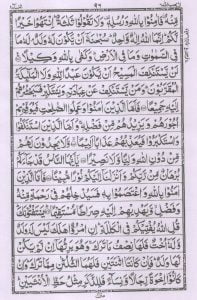 ٩٦
مِّنْهُ فَاٰمِنُوْا بِاللّٰهِ وَرُسُلِهٖ وَلَا تَقُوْلُوْا ثَلٰثَةٌ اِنْتَهُوْا خَيْرًا
لَّكُمْ اِنَّمَا اللّٰهُ اِلٰهٌ وَّاحِدٌ سُبْحٰنَهٗٓ اَنْ يَّكُوْنَ لَهٗ وَلَدٌ لَهٗ مَا
فِى السَّمٰوٰتِ وَمَا فِى الْاَرْضِ وَكَفٰى بِاللّٰهِ وَكِيْلًا
لَنْ يَّسْتَنْكِفَ الْمَسِيْحُ اَنْ يَّكُوْنَ عَبْدًا لِّلّٰهِ وَلَا الْمَلٰٓئِكَةُ
الْمُقَرَّبُوْنَ وَمَنْ يَّسْتَنْكِفْ عَنْ عِبَادَتِهٖ وَيَسْتَكْبِرْ فَسَيَحْشُرُهُمْ
اِلَيْهِ جَمِيْعًا فَاَمَّا الَّذِيْنَ اٰمَنُوْا وَعَمِلُوا الصّٰلِحٰتِ فَيُوَفِّيْهِمْ
اُجُوْرَهُمْ وَيَزِيْدُهُمْ مِّنْ فَضْلِهٖ وَاَمَّا الَّذِيْنَ اسْتَنْكَفُوْا
وَاسْتَكْبَرُوْا فَيُعَذِّبُهُمْ عَذَابًا اَلِيْمًا وَّلَا يَجِدُوْنَ لَهُمْ
مِّنْ دُوْنِ اللّٰهِ وَلِيًّا وَّلَا نَصِيْرًا يٰٓاَيُّهَا النَّاسُ قَدْ جَآءَكُمْ
بُرْهَانٌ مِّنْ رَّبِّكُمْ وَاَنْزَلْنَآ اِلَيْكُمْ نُوْرًا مُّبِيْنًا فَاَمَّا الَّذِيْنَ
اٰمَنُوْا بِاللّٰهِ وَاعْتَصَمُوْا بِهٖ فَسَيُدْخِلُهُمْ فِىْ رَحْمَةٍ مِّنْهُ
وَفَضْلٍ وَّيَهْدِيْهِمْ اِلَيْهِ صِرَاطًا مُّسْتَقِيْمًا يَسْتَفْتُوْنَكَ
قُلِ اللّٰهُ يُفْتِيْكُمْ فِى الْكَلٰلَةِ اِنِ امْرُؤٌا هَلَكَ لَيْسَ لَهٗ وَلَدٌ
وَّلَهٗٓ اُخْتٌ فَلَهَا نِصْفُ مَا تَرَكَ وَهُوَ يَرِثُهَآ اِنْ لَّمْ يَكُنْ
لَّهَا وَلَدٌ فَاِنْ كَانَتَا اثْنَتَيْنِ فَلَهُمَا الثُّلُثٰنِ مِمَّا تَرَكَ وَاِنْ
كَانُوْٓا اِخْوَةً رِّجَالًا وَّنِسَآءً فَلِلذَّكَرِ مِثْلُ حَظِّ الْاُنْثَيَيْنِ